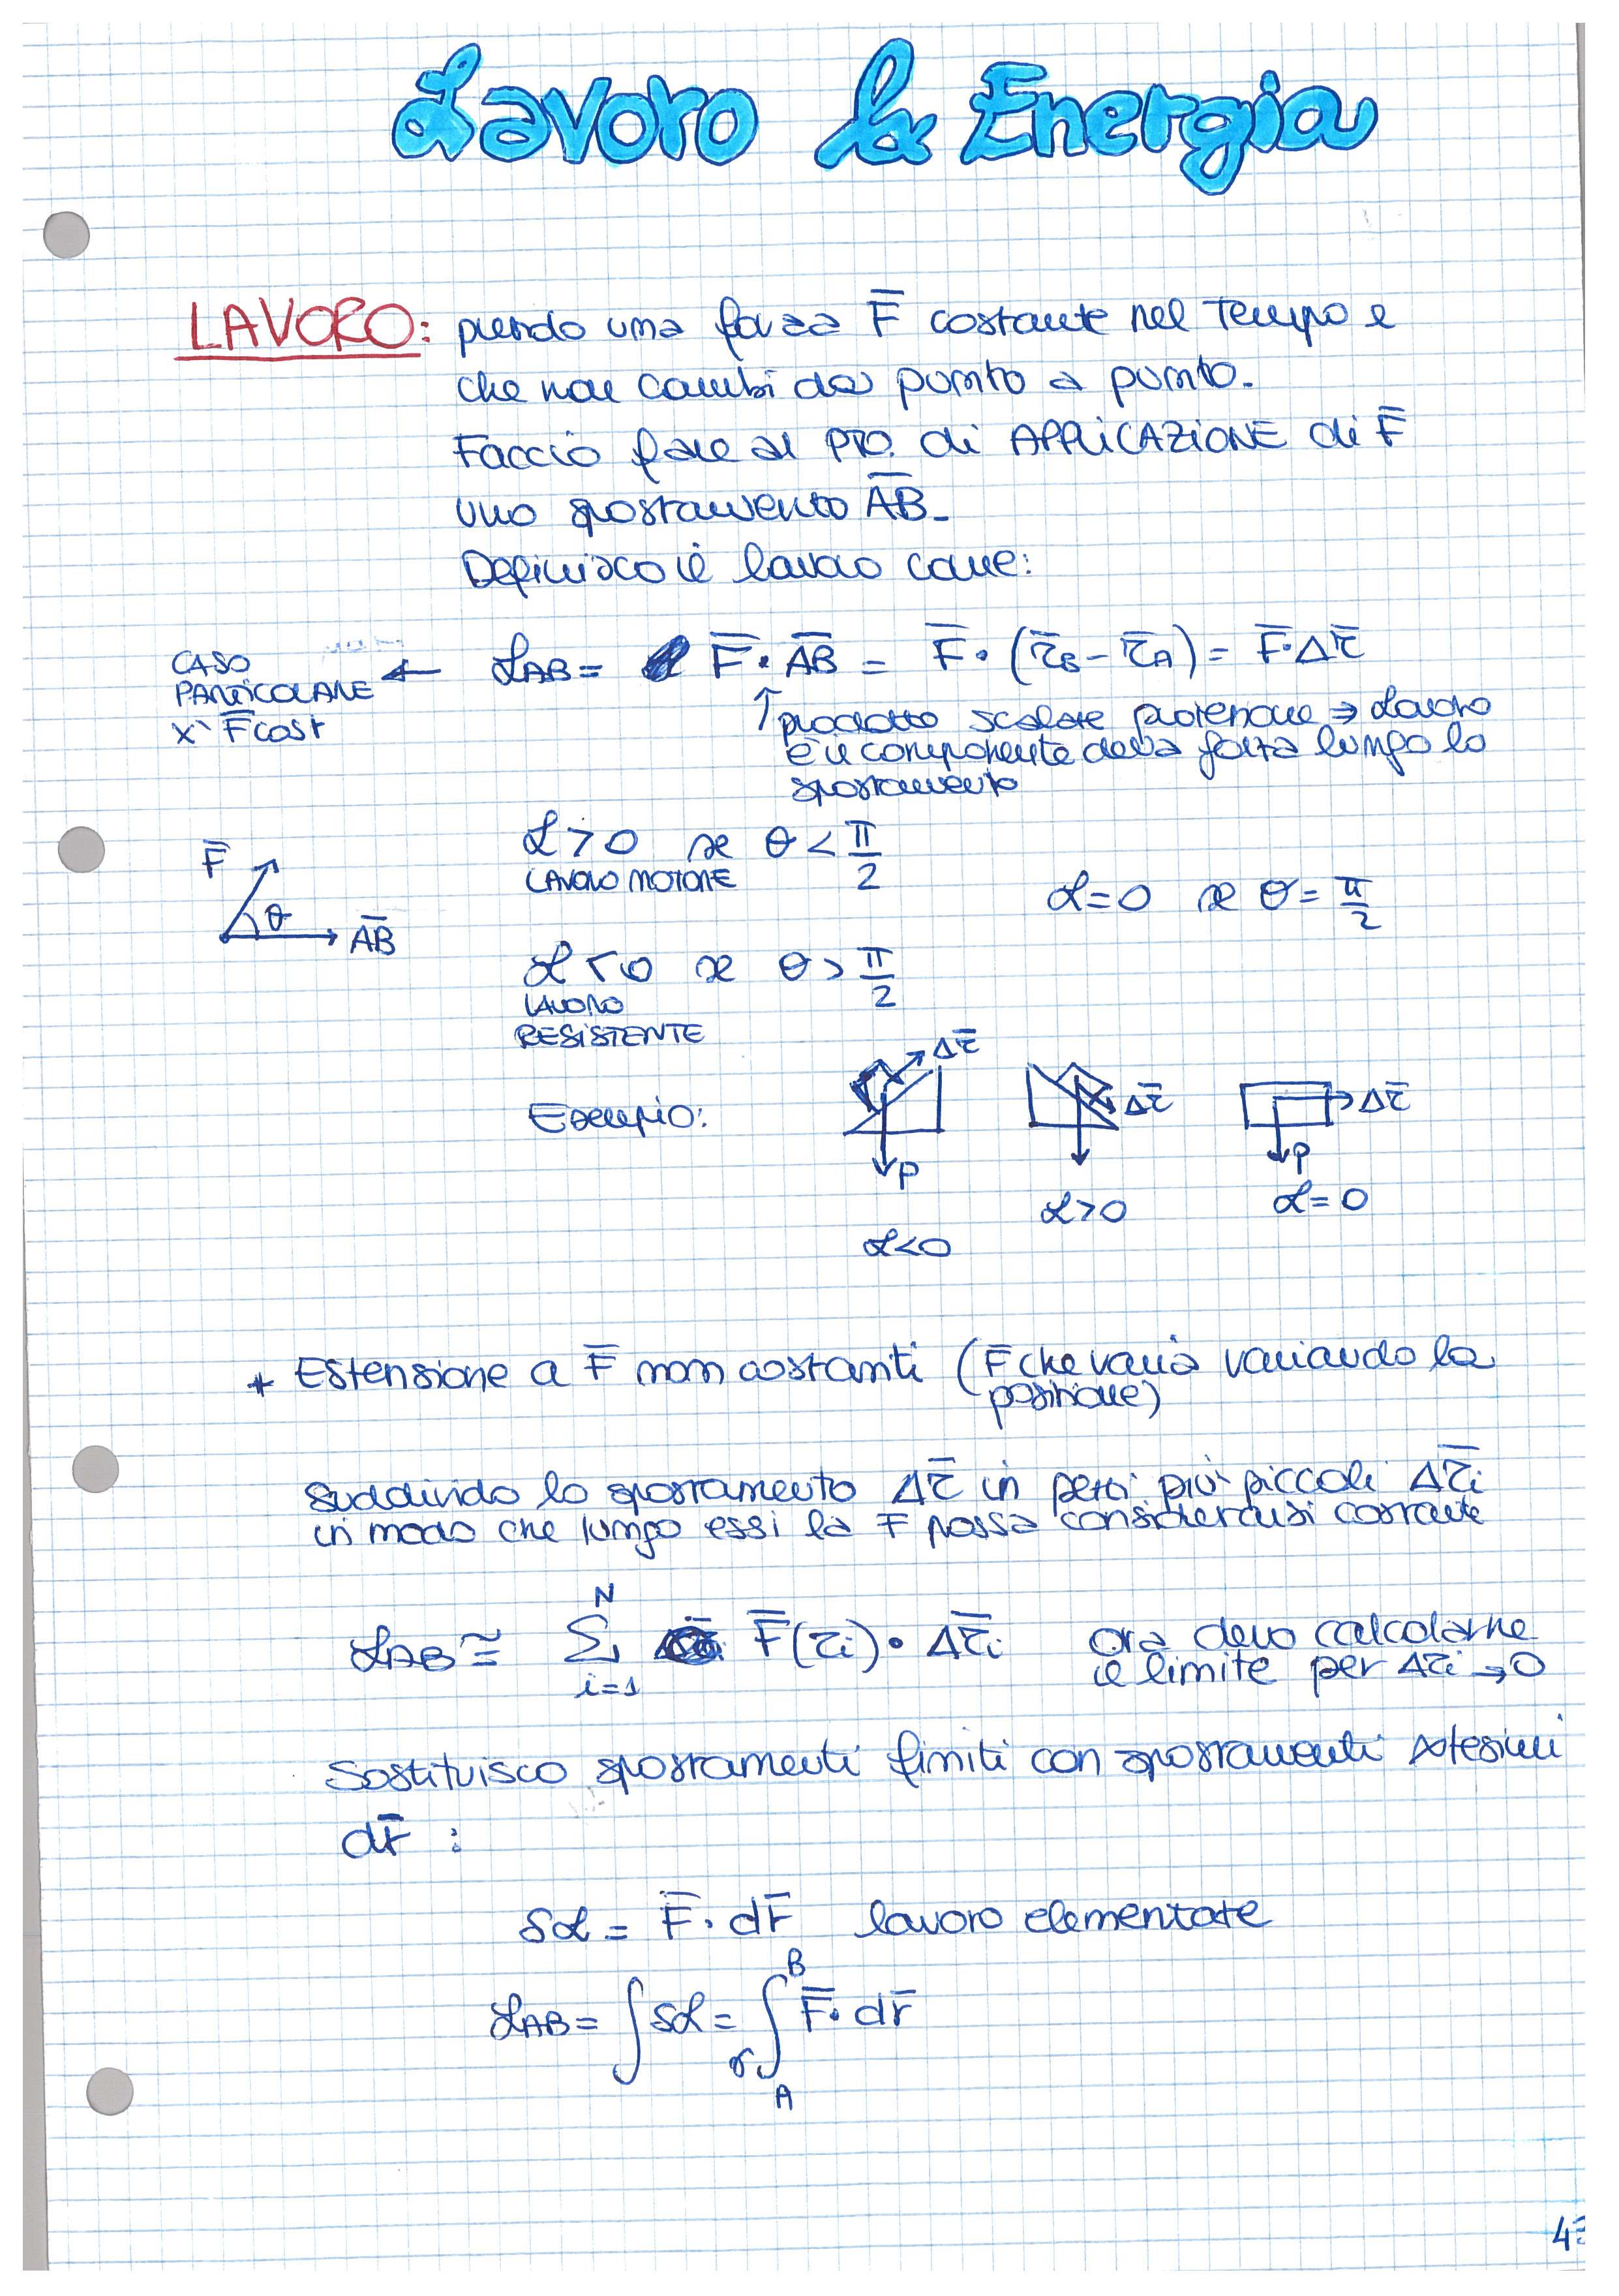 Lavoro & Energia
LAVORO: prendo una forza F̅ costante nel Tempo e
che non cambi da punto a punto.
Faccio fare al PTO. di APPLICAZIONE di F̅
uno spostamento A̅B̅.
Definisco il lavoro come:
CASO PARTICOLARE X` F̅ cost ← ℒAB = F̅ · A̅B̅ = F̅ · (r̅B - r̅A) = F̅ · Δr̅
↑ prodotto scalare proiezione ⇒ Lavoro
è il componente della forza lungo lo
spostamento
F̅ θ A̅B̅
ℒ > 0 se θ < π/2
LAVORO MOTORE
ℒ = 0 se θ = π/2
ℒ < 0 se θ > π/2
LAVORO
RESISTENTE
Esempio:
Δr̅ P ℒ<0
Δr̅ ℒ>0
Δr̅ P ℒ=0
* Estensione a F̅ non costanti (F che varia variando la
posizione)
suddivido lo spostamento Δr̅ in pezzi più piccoli Δr̅i
in modo che lungo essi la F possa considerarsi costante
ℒAB ≅ N Σ i=1 F̅(ri) · Δr̅i ora devo calcolarne
il limite per Δri → 0
Sostituisco spostamenti finiti con spostamenti
dr̅ :
δℒ = F̅ · dr̅ lavoro elementare
ℒAB = ∫ δℒ = γ ∫ A B F̅ · dr̅